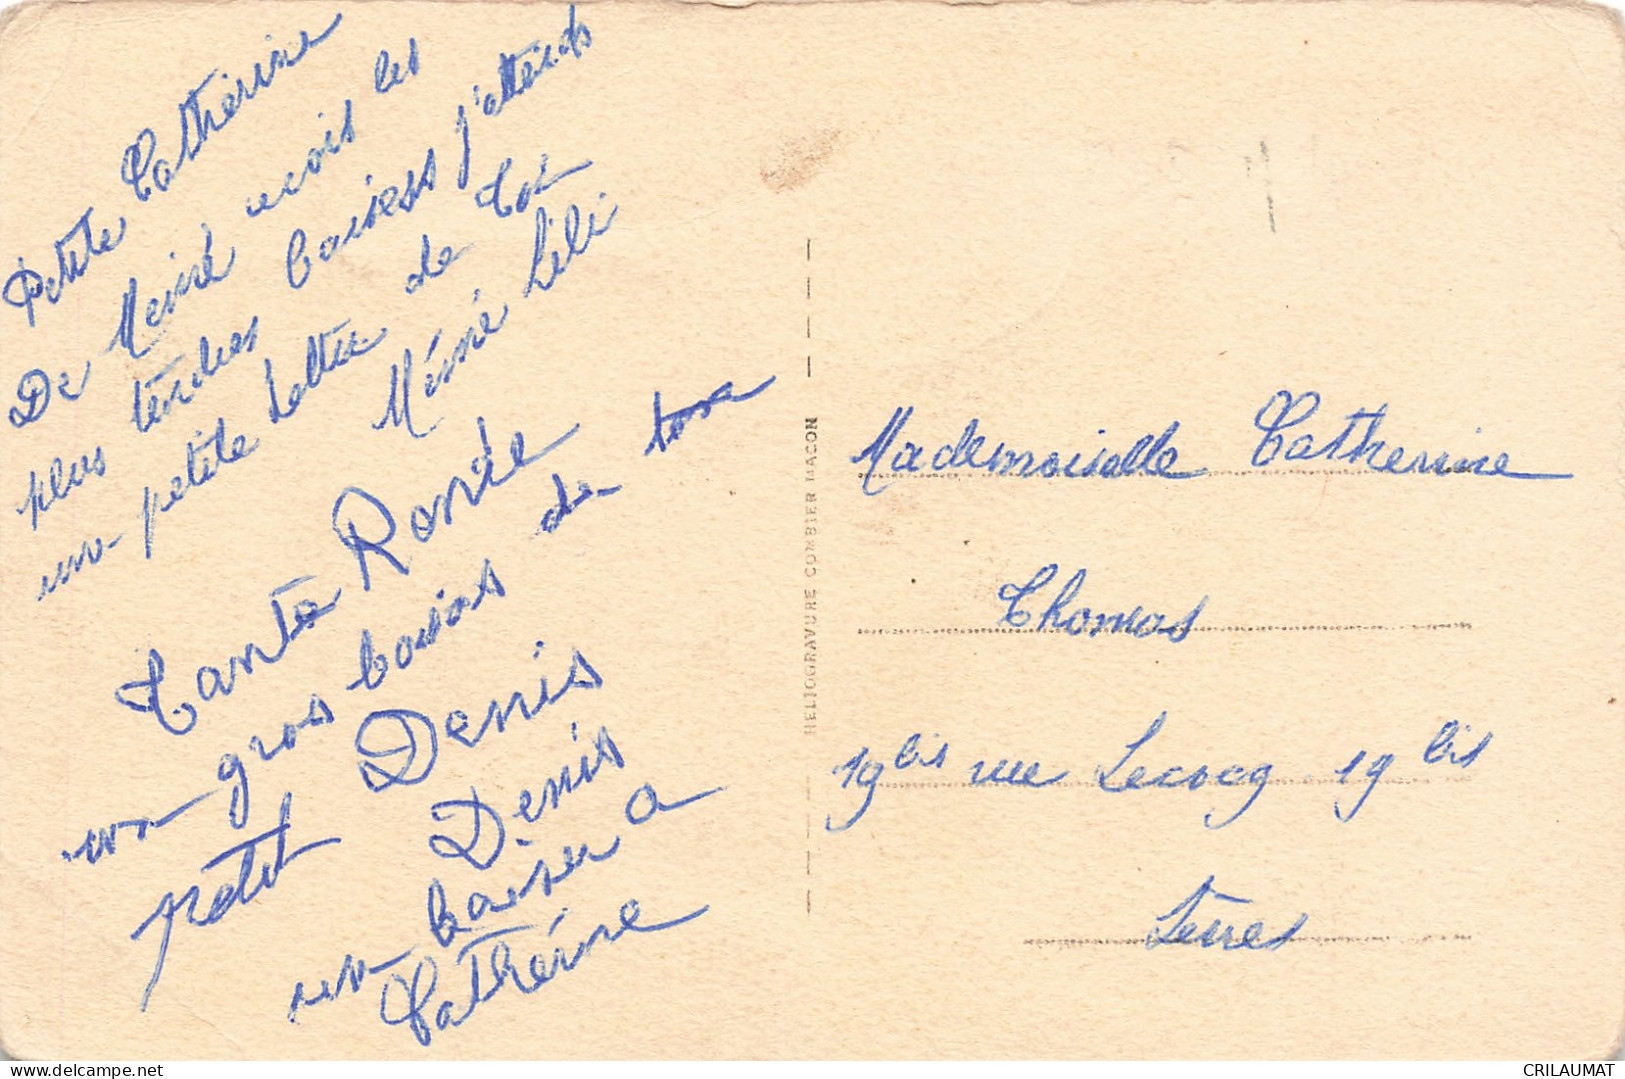 Petite Catherine
De Mémé recois les
plus tendres baisers j'attends
une petite lettre de toi
Mémé Lili
Tante Ronde
un gros baiser de ton
petit Denis
Denis
un baiser a
Catherine
HELIOGRAVURE COMBIER MACON
Mademoiselle Catherine
Thomas
19 bis rue Lecocq 19 bis
delcampe.net
CRILAUMAT